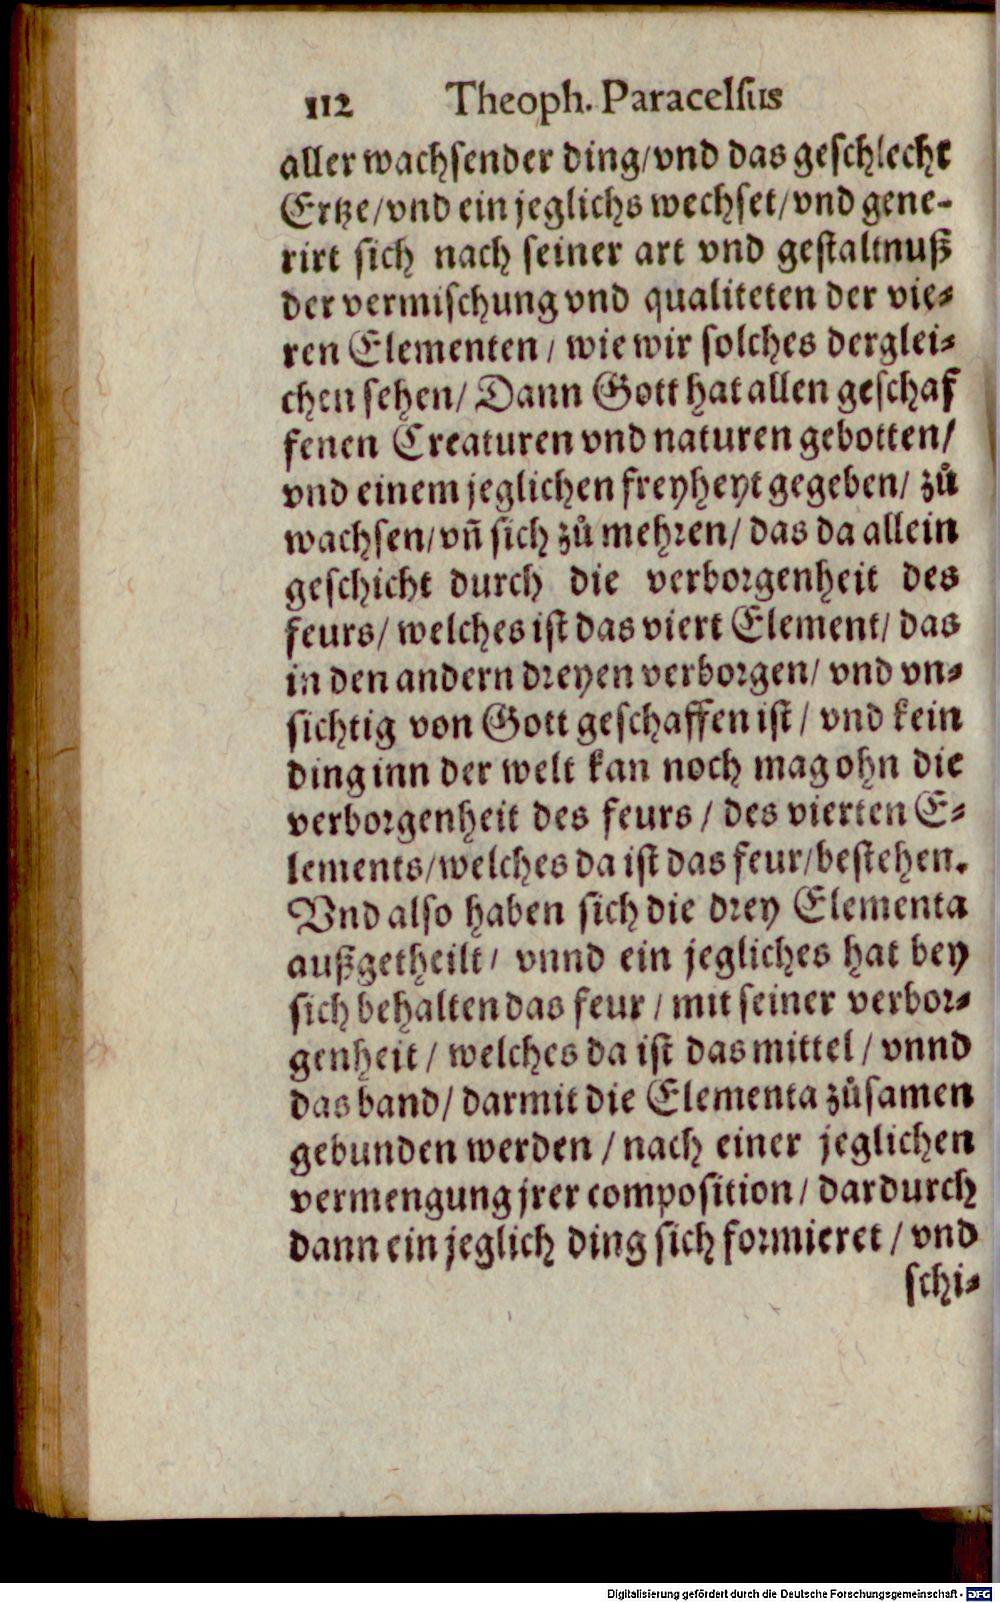 112 Theoph. Paracelsus
aller wachsender ding/vnd das geschlecht
Ertze/vnd ein jeglichs wechset/vnd gene-
rirt sich nach seiner art vnd gestaltnuß
der vermischung vnd qualiteten der vie-
ren Elementen / wie wir solches derglei-
chen sehen/ Dann Gott hat allen geschaf
fenen Creaturen vnd naturen gebotten/
vnd einem jeglichen freyheyt gegeben/ zů
wachsen/vñ sich zů mehren/ das da allein
geschicht durch die verborgenheit des
feurs/ welches ist das viert Element/ das
in den andern dreyen verborgen/ vnd vn-
sichtig von Gott geschaffen ist / vnd kein
ding inn der welt kan noch mag ohn die
verborgenheit des feurs / des vierten E-
lements/welches da ist das feur/bestehen.
Vnd also haben sich die drey Elementa
außgetheilt/ vnnd ein jegliches hat bey
sich behalten das feur / mit seiner verbor-
genheit / welches da ist das mittel / vnnd
das band/ darmit die Elementa zůsamen
gebunden werden / nach einer jeglichen
vermengung jrer composition/ dardurch
dann ein jeglich ding sich formieret / vnd
schi-
Digitalisierung gefördert durch die Deutsche Forschungsgemeinschaft - DFG